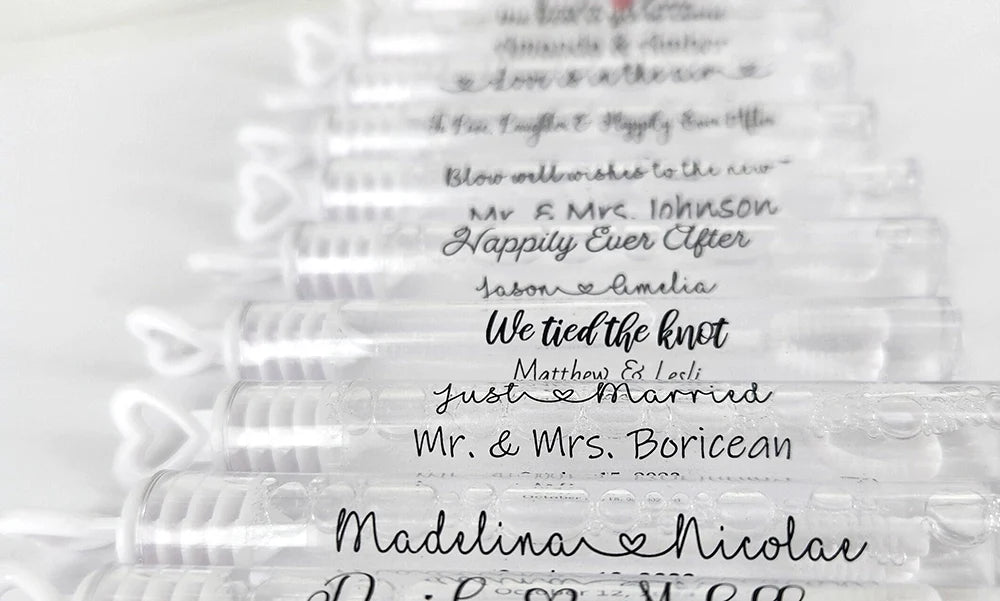 Love is in the air
& Happily Ever After
Blow well wishes to the new
Mr. & Mrs. Johnson
Happily Ever After
Jason Amelia
We tied the knot
Matthew & Lesli
Just Married
Mr. & Mrs. Boricean
October
Madelina Nicolae
October 12,